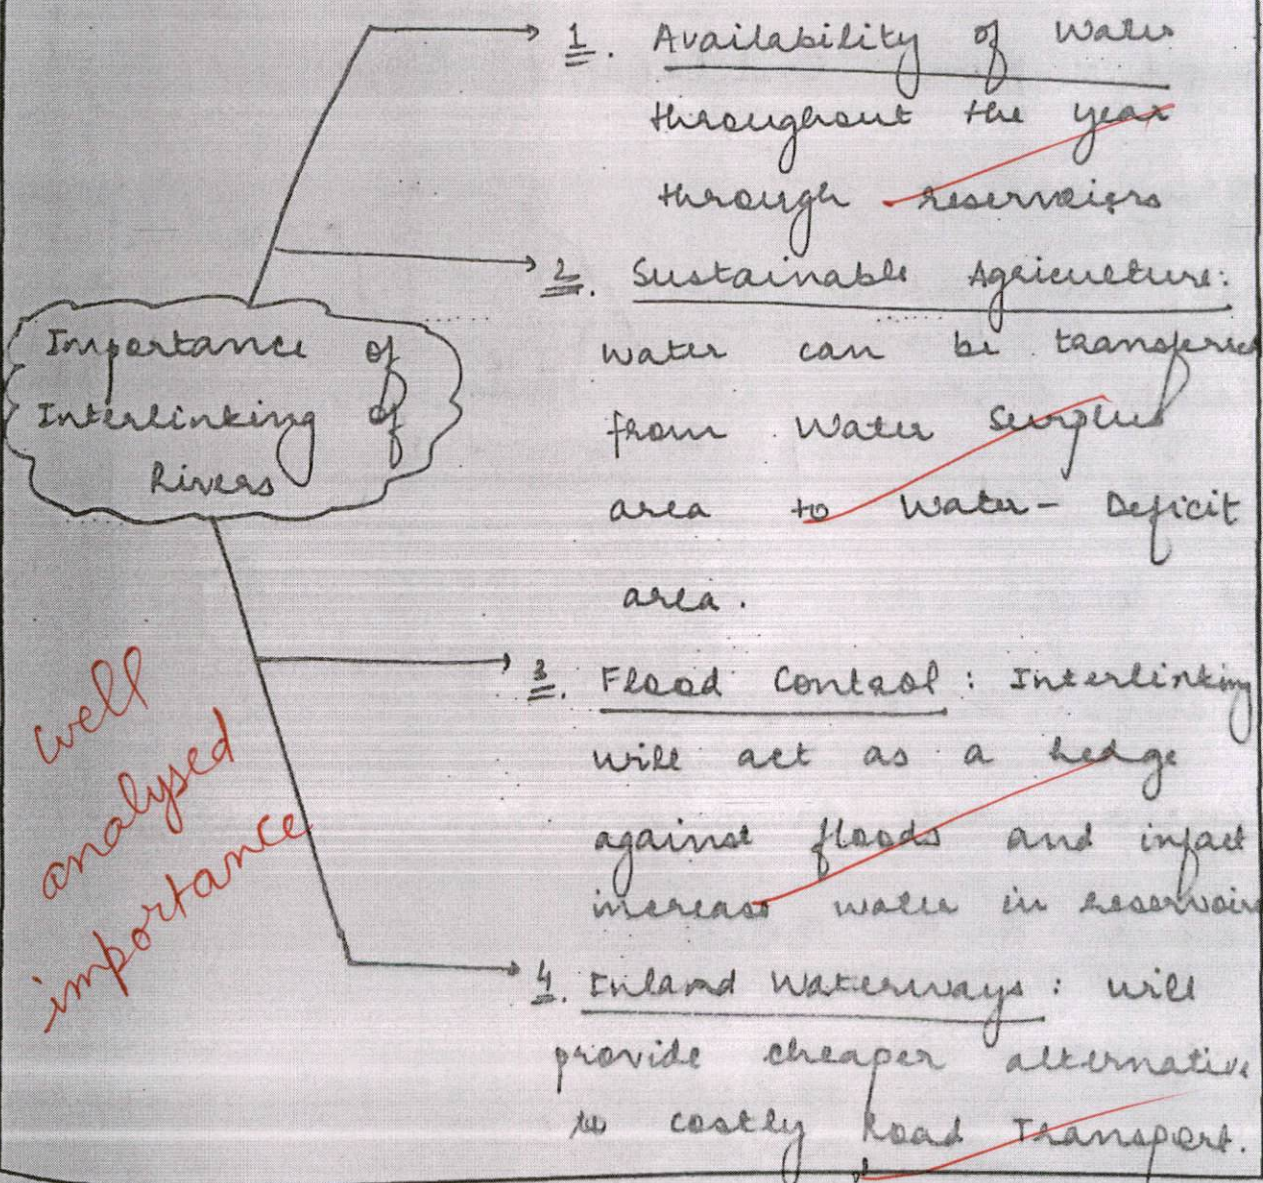 Importance of
Interlinking of
Rivers
1. Availability of Water
throughout the year
through reservoiers
2. Sustainable Agriculture:
water can be transfered
from Water Surplus
area to Water- Deficit
area.
3. Flood Control : Interlinking
will act as a hedge
against floods and infact
increase water in reservoir
4. Inland Waterways : will
provide cheaper alternative
to costly Road Transport.
well
analysed
importance